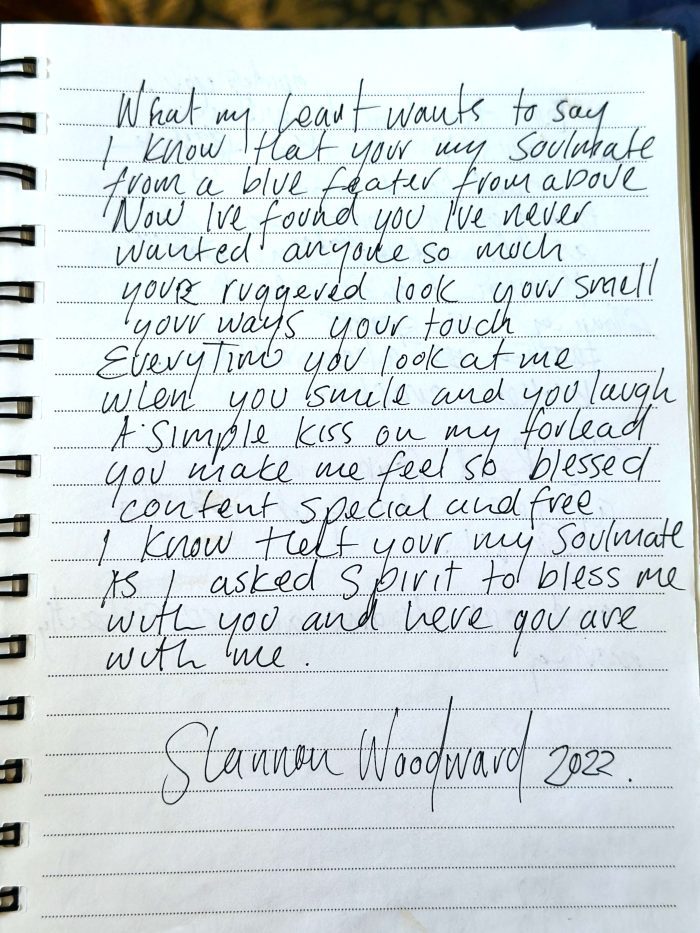 What my heart wants to say
I know that your my Soulmate
from a blue feater from above
Now Ive found you I've never
wanted anyone so much
your ruggered look your smell
your ways your touch
Everytime you look at me
when you smile and you laugh
A simple kiss on my forhead
you make me feel so blessed
content special and free
I know that your my Soulmate
As I asked Spirit to bless me
with you and here you are
with me.
Shannon Woodward 2022.